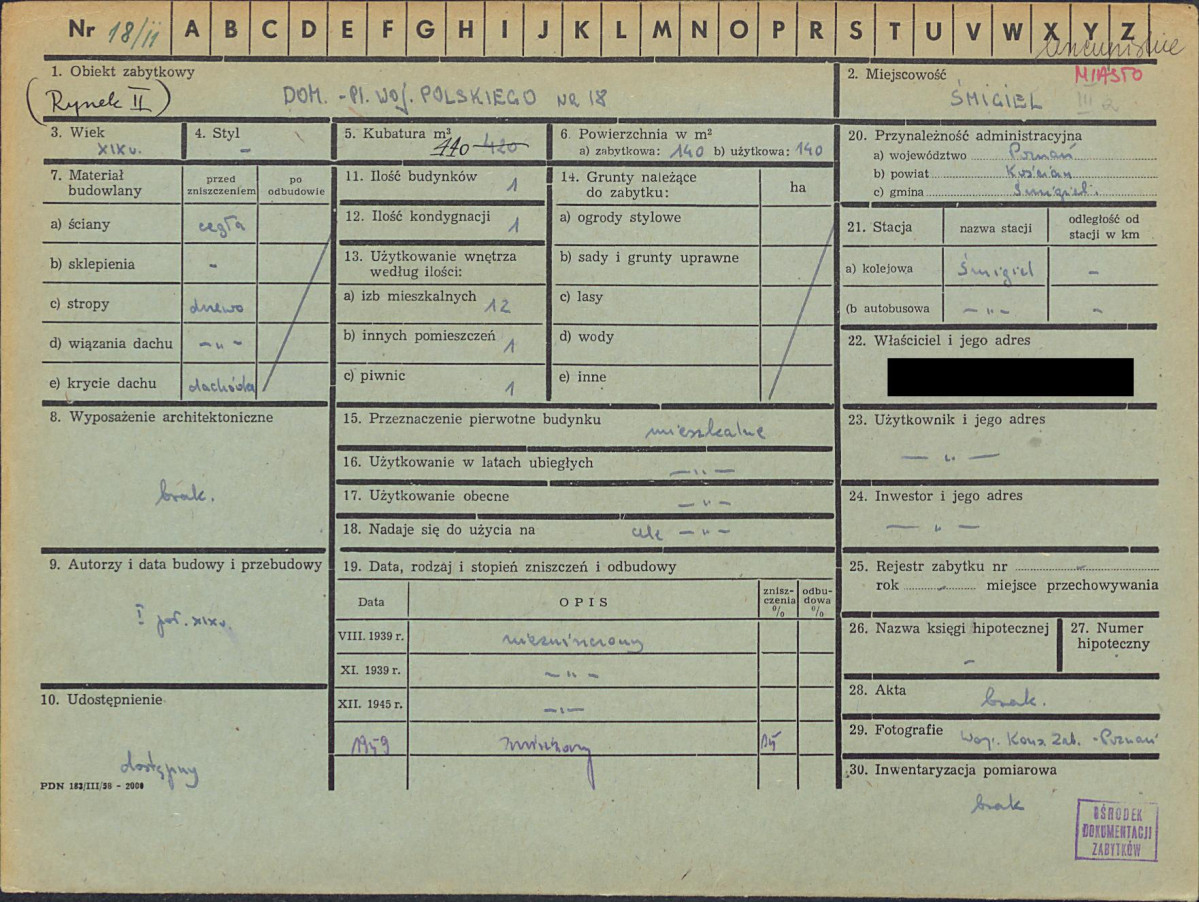 Nr 18/II A B C D E F G H I J K L M N O P R S T U V W X Y Z
1. Obiekt zabytkowy
(Rynek II) DOM. - Pl. WOJ. POLSKIEGO NR 18
2. Miejscowość MIASTO
ŚMIGIEL III 2
3. Wiek
XIX w.
4. Styl
-
5. Kubatura m³
440 420
6. Powierzchnia w m²
a) zabytkowa: 140 b) użytkowa: 140
20. Przynależność administracyjna
a) województwo Poznań
b) powiat Kościan
c) gmina Śmigiel
7. Materiał budowlany
przed zniszczeniem
po odbudowie
a) ściany cegła
b) sklepienia -
c) stropy drewo
d) wiązania dachu - „ -
e) krycie dachu dachówka
11. Ilość budynków 1
12. Ilość kondygnacji 1
13. Użytkowanie wnętrza
według ilości:
a) izb mieszkalnych 12
b) innych pomieszczeń 1
c) piwnic 1
14. Grunty należące
do zabytku:
ha
a) ogrody stylowe
b) sady i grunty uprawne
c) lasy
d) wody
e) inne
21. Stacja
nazwa stacji
odległość od
stacji w km
a) kolejowa Śmigiel -
(b autobusowa - „ - -
22. Właściciel i jego adres
8. Wyposażenie architektoniczne
brak.
15. Przeznaczenie pierwotne budynku
mieszkalne
16. Użytkowanie w latach ubiegłych
- „ -
17. Użytkowanie obecne
- „ -
18. Nadaje się do użycia na cele - „ -
23. Użytkownik i jego adres
- „ -
24. Inwestor i jego adres
- „ -
9. Autorzy i data budowy i przebudowy
I poł. XIX w.
19. Data, rodzaj i stopień zniszczeń i odbudowy
Data
OPIS
znisz-
czenia
%
odbu-
dowa
%
VIII. 1939 r. niezniszczony
XI. 1939 r. - „ -
XII. 1945 r. - „ -
1959 15
25. Rejestr zabytku nr
rok miejsce przechowywania
26. Nazwa księgi hipotecznej
-
27. Numer
hipoteczny
28. Akta
brak.
29. Fotografie Woj. Kons. Zab. - Poznań
30. Inwentaryzacja pomiarowa
brak
10. Udostępnienie
dostępny
PDN 183/III/58 - 2000
OŚRODEK
DOKUMENTACJI
ZABYTKÓW